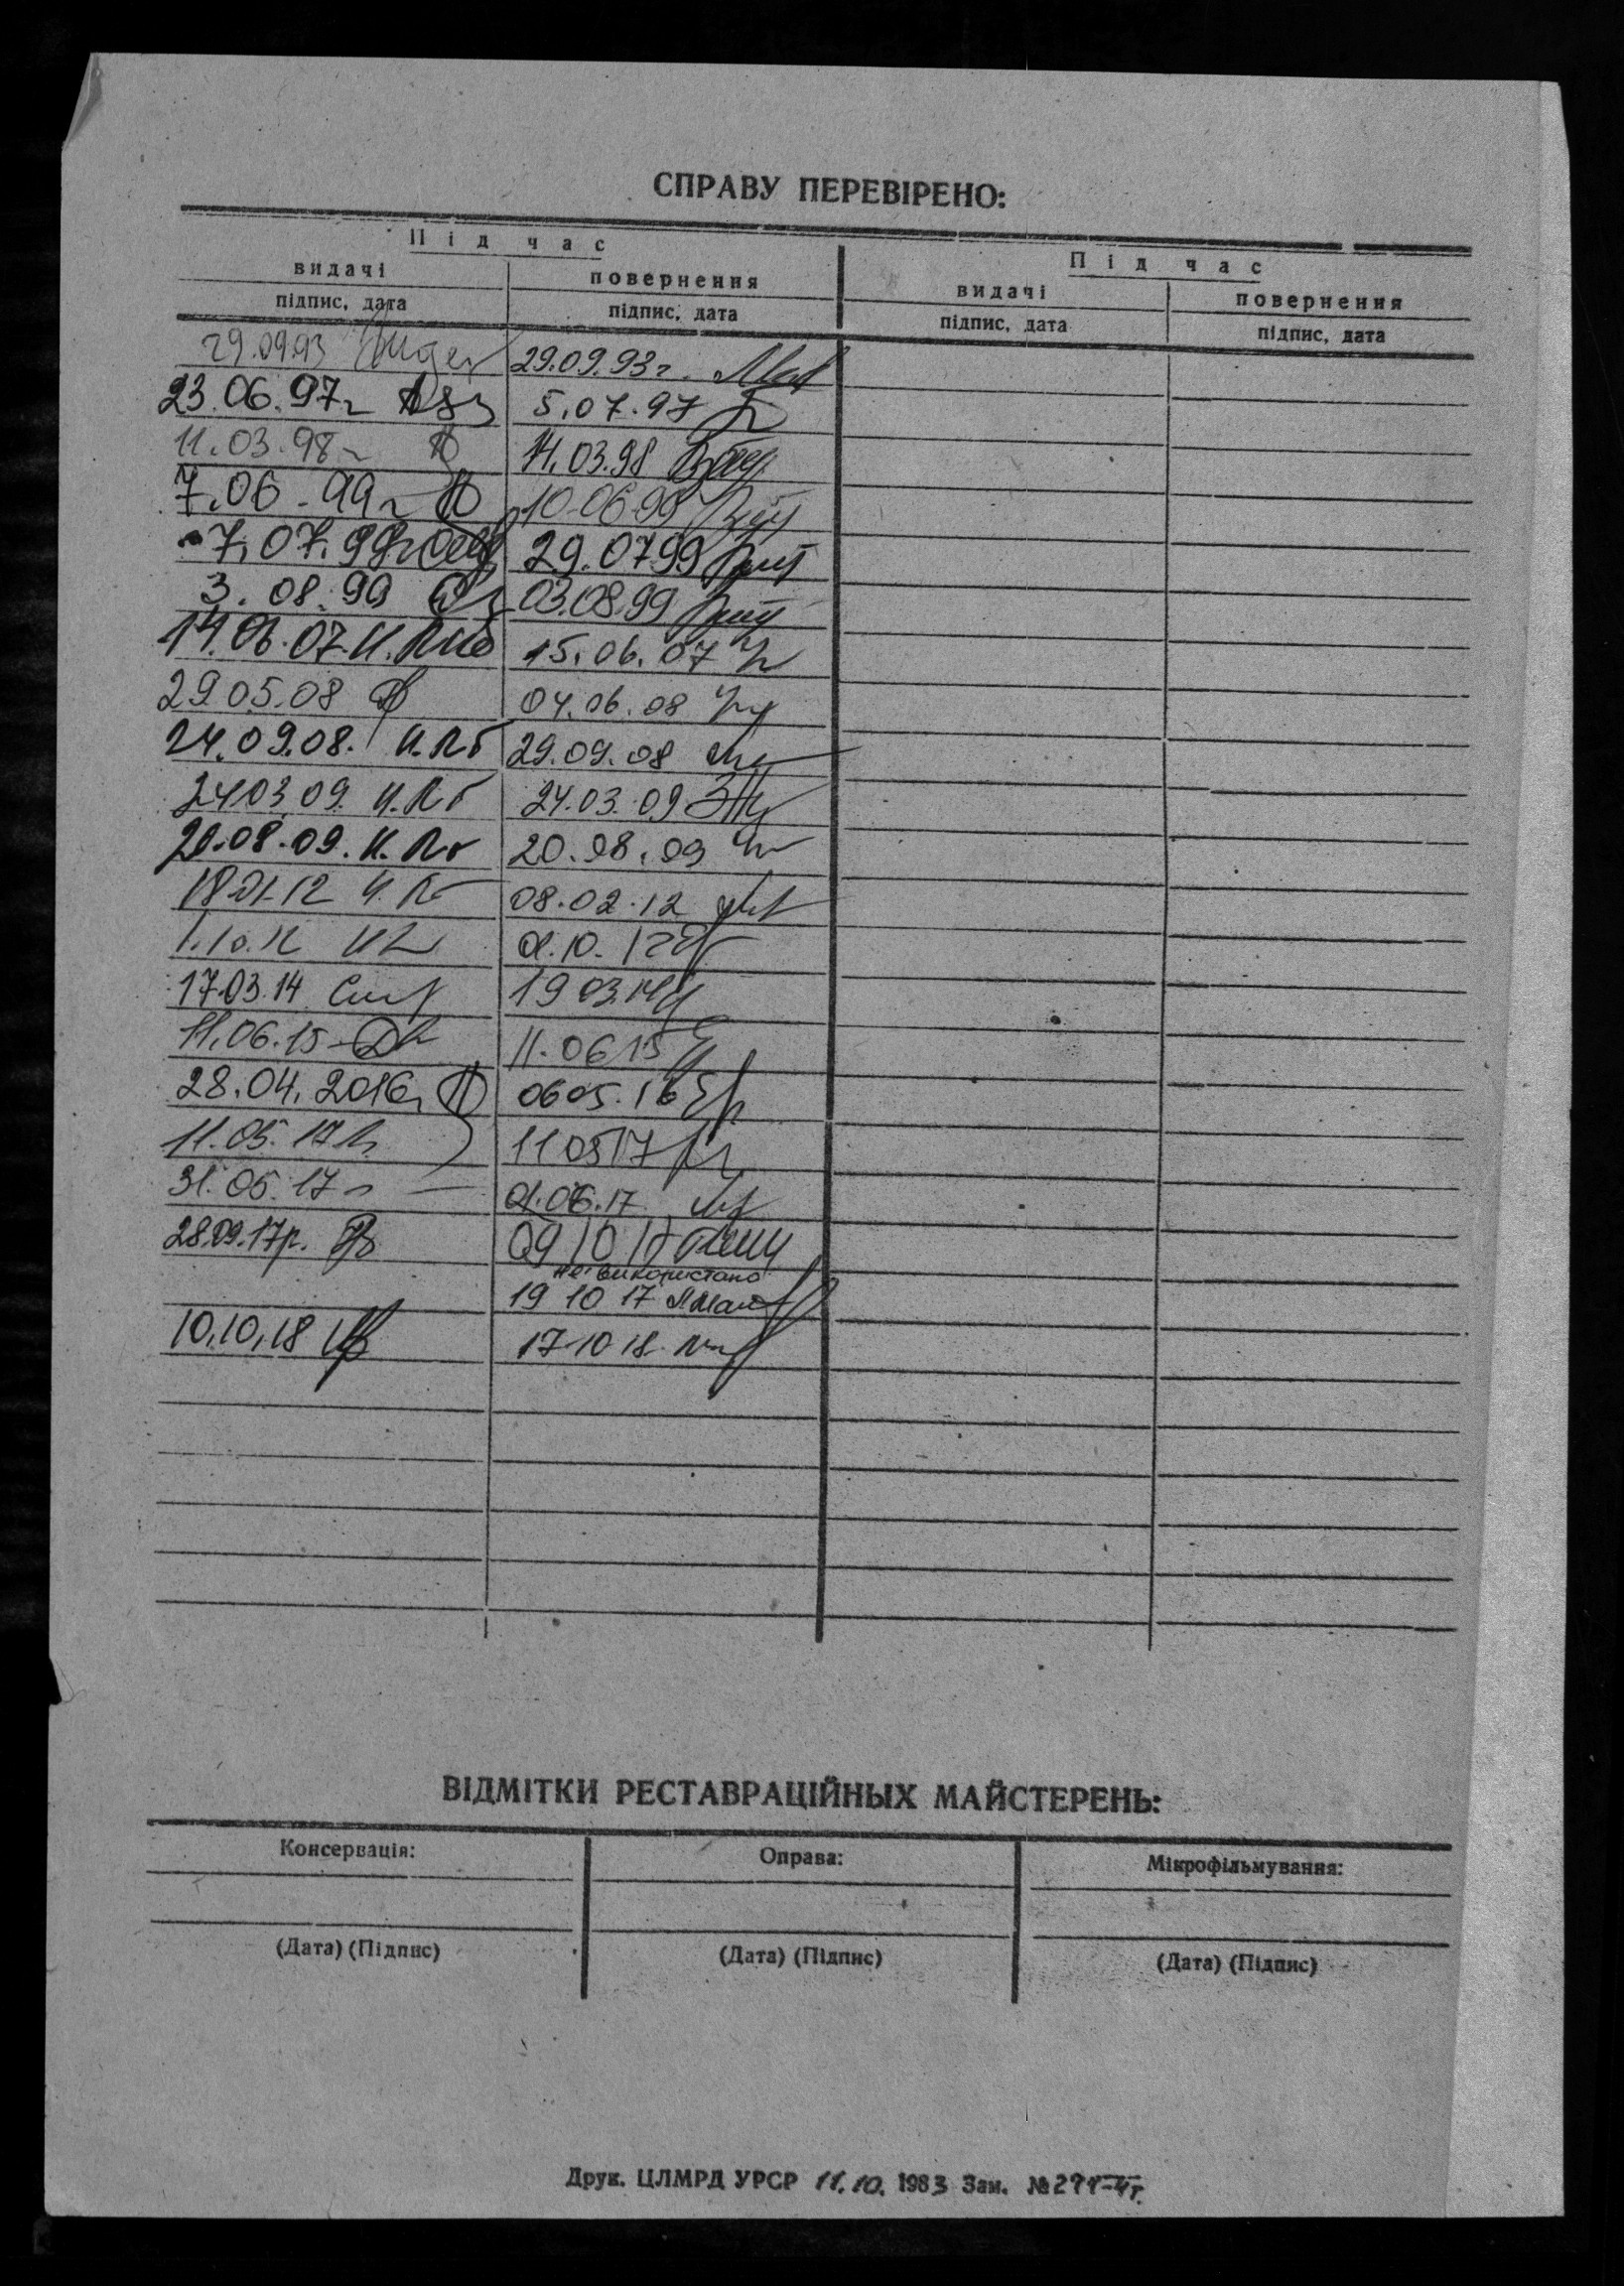 СПРАВУ ПЕРЕВІРЕНО:
Під час Під час
видачі повернення видачі повернення
підпис, дата підпис, дата підпис, дата підпис, дата
29.09.93 29.09.93г.
23.06.97г 5.07.97
11.03.98г 14.03.98
7.06.99г 10.06.99
7.07.99г 29.07.99
3.08.99 03.08.99
14.06.07 15.06.07
29.05.08 04.06.08
24.09.08. 29.09.08
24.03.09. 24.03.09
20.08.09. 20.08.09
18.01.12 08.02.12
1.10.12 01.10.12
17.03.14 19.03.14
11.06.15 11.06.15
28.04.2016 06.05.16
11.05.17 11.05.17
31.05.17 01.06.17
28.09.17р. 09 10 17
не використано
19 10 17
10,10,18 17 10 18
ВІДМІТКИ РЕСТАВРАЦІЙНЫХ МАЙСТЕРЕНЬ:
Консервація: Оправа: Мікрофільмування:
(Дата) (Підпис) (Дата) (Підпис) (Дата) (Підпис)
Друк. ЦЛМРД УРСР 11.10. 1983 Зам. №